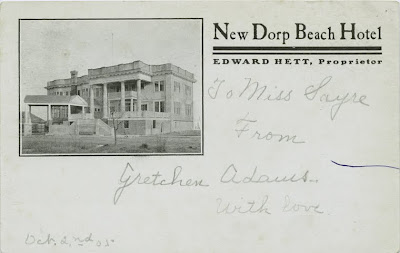 New Dorp Beach Hotel
EDWARD HETT, Proprietor
To Miss Sayre
From
Gretchen Adams.
With love
Oct. 2nd 05